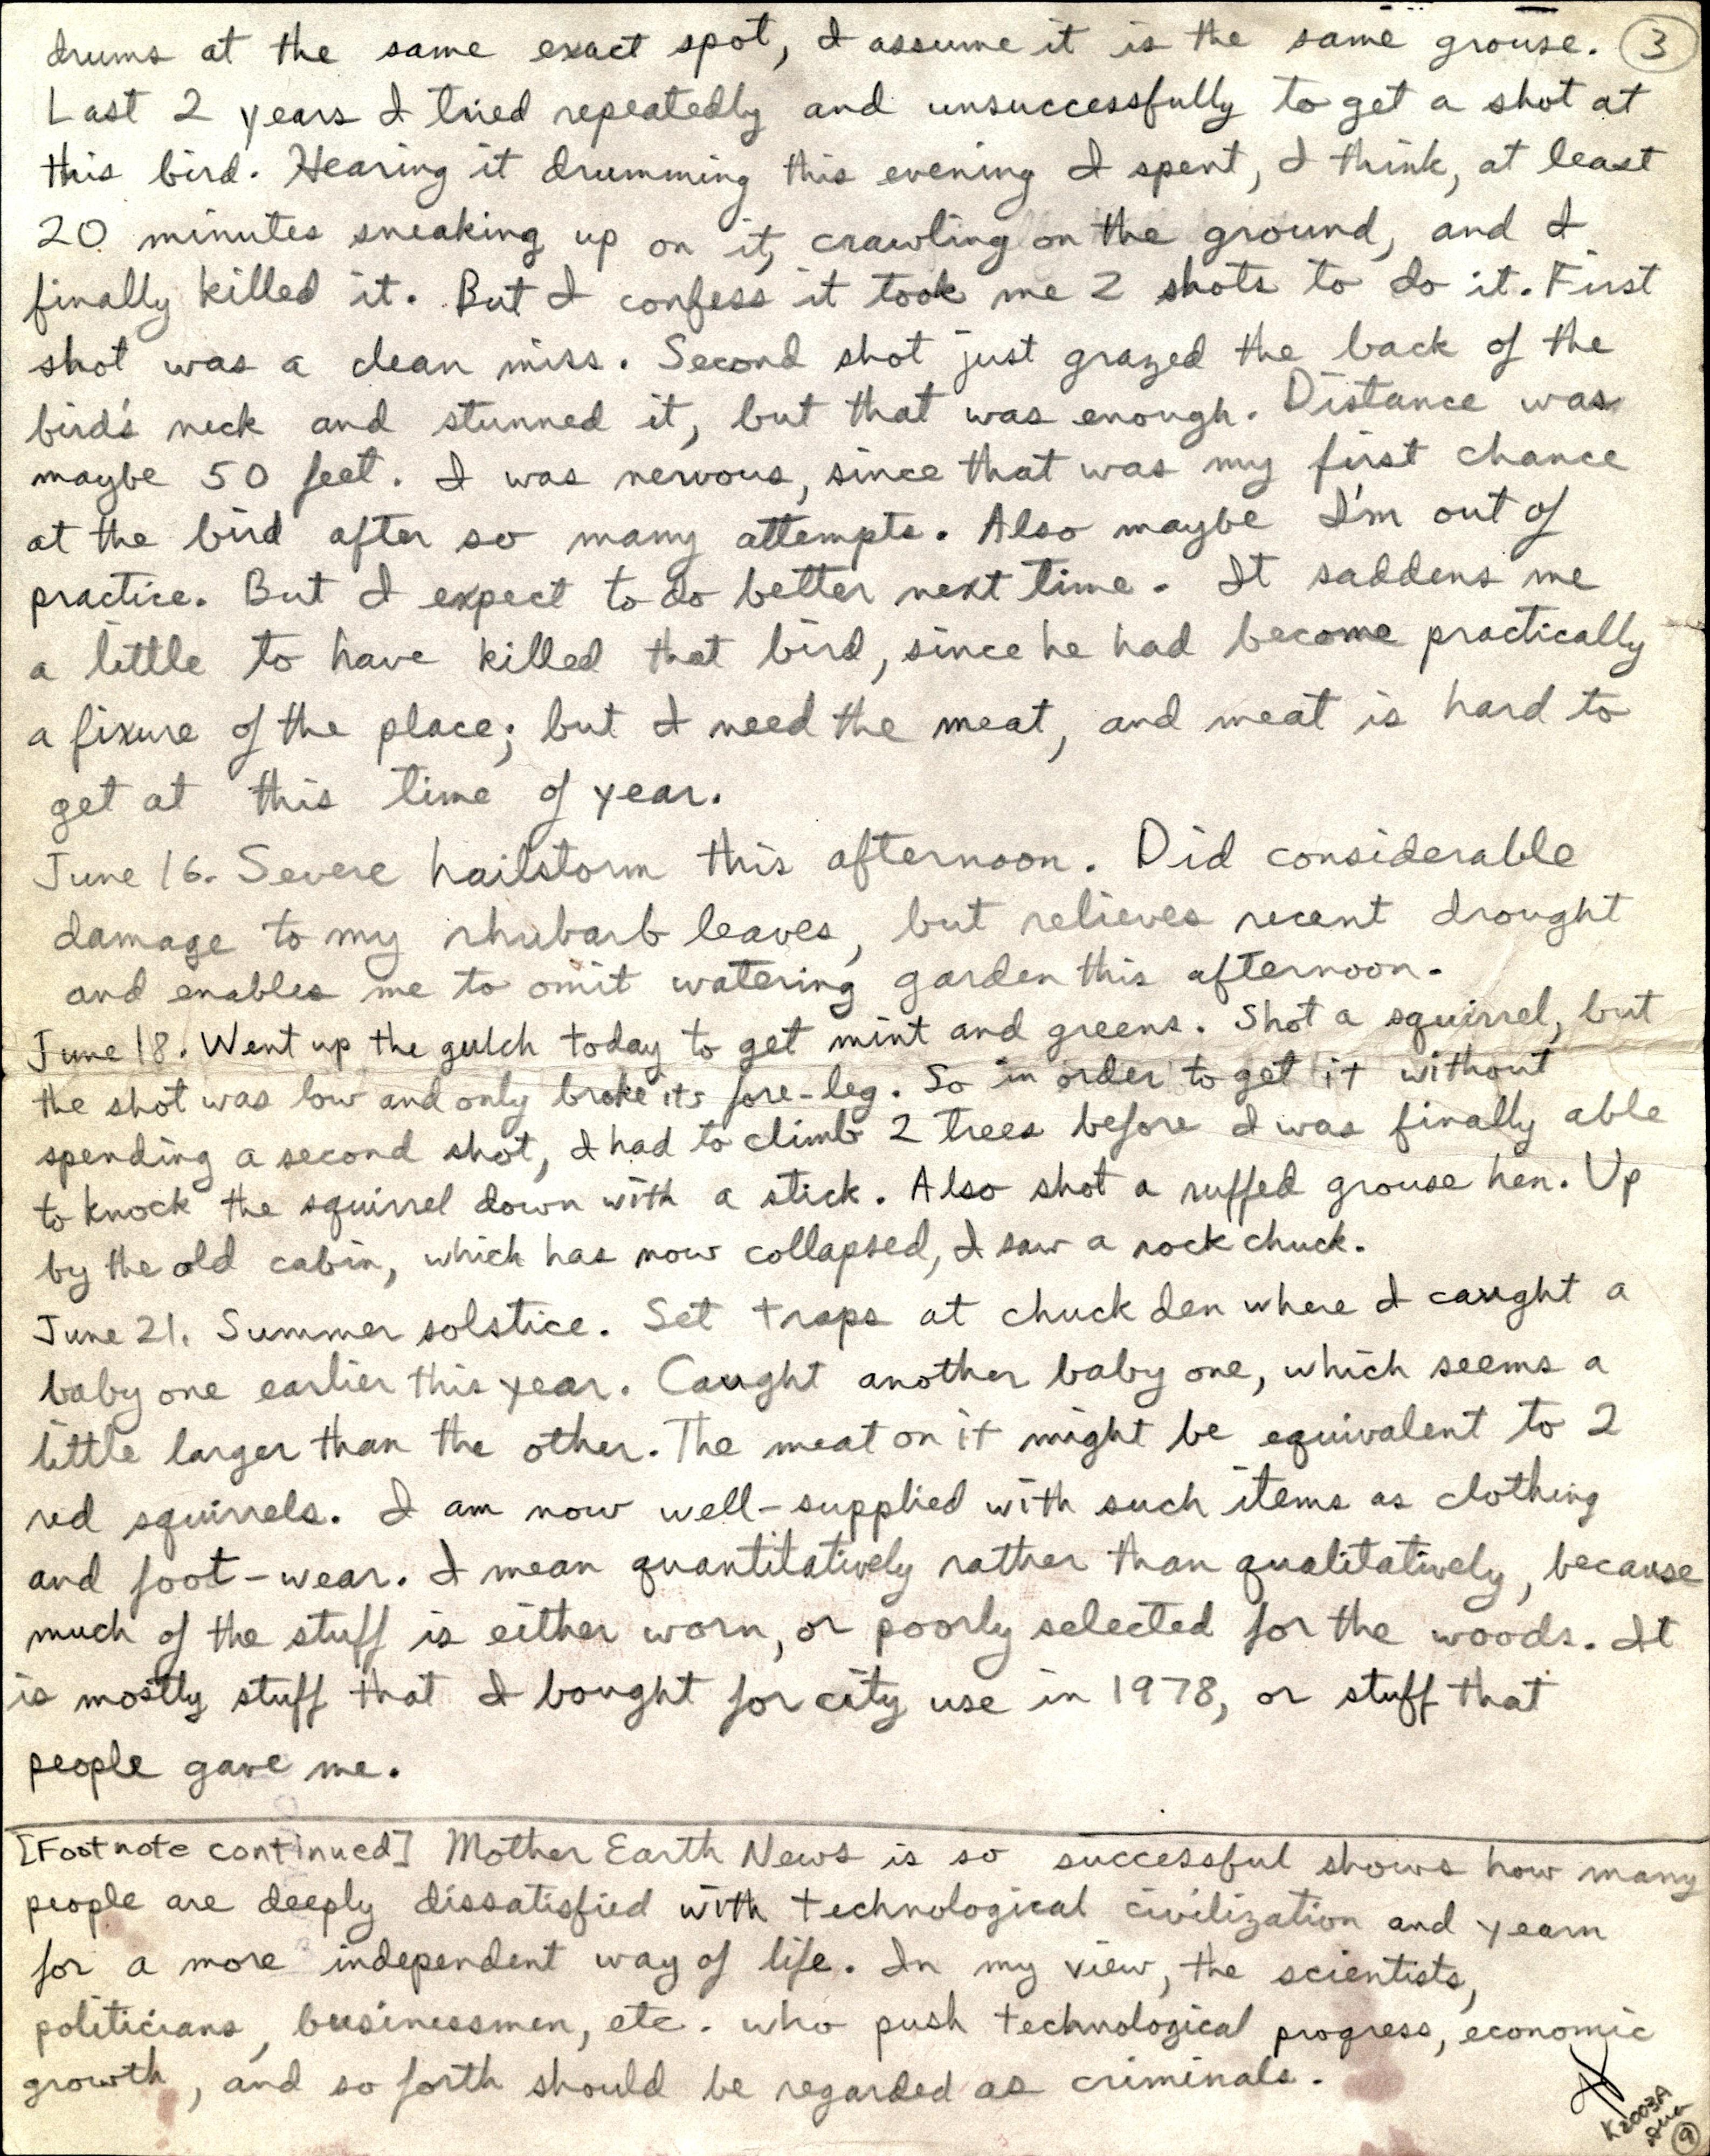 drums at the same exact spot, I assume it is the same grouse. 3
Last 2 years I tried repeatedly and unsuccessfully to get a shot at
this bird. Hearing it drumming this evening I spent, I think, at least
20 minutes sneaking up on it, crawling on the ground, and I
finally killed it. But I confess it took me 2 shots to do it. First
shot was a clean miss. Second shot just grazed the back of the
bird's neck and stunned it, but that was enough. Distance was
maybe 50 feet. I was nervous, since that was my first chance
at the bird after so many attempts. Also maybe I'm out of
practice. But I expect to do better next time. It saddens me
a little to have killed that bird, since he had become practically
a fixure of the place; but I need the meat, and meat is hard to
get at this time of year.
June 16. Severe hailstorm this afternoon. Did considerable
damage to my rhubarb leaves, but relieves recent drought
and enables me to omit watering garden this afternoon.
June 18. Went up the gulch today to get mint and greens. Shot a squirrel, but
the shot was low and only broke its fore-leg. So in order to get it without
spending a second shot, I had to climb 2 trees before I was finally able
to knock the squirrel down with a stick. Also shot a ruffed grouse hen. Up
by the old cabin, which has now collapsed, I saw a rock chuck.
June 21. Summer solstice. Set traps at chuck den where I caught a
baby one earlier this year. Caught another baby one, which seems a
little larger than the other. The meat on it might be equivalent to 2
red squirrels. I am now well-supplied with such items as clothing
and foot-wear. I mean quantitatively rather than qualitatively, because
much of the stuff is either worn, or poorly selected for the woods. It
is mostly stuff that I bought for city use in 1978, or stuff that
people gave me.
[Footnote continued] Mother Earth News is so successful shows how many
people are deeply dissatisfied with technological civilization and yearn
for a more independent way of life. In my view, the scientists,
politicians, businessmen, etc. who push technological progress, economic
growth, and so forth should be regarded as criminals.
K2003A
9